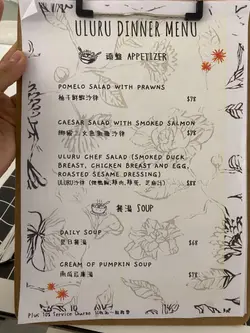 ULURU DINNER MENU
頭盤 APPETIZER
POMELO SALAD WITH PRAWNS
柚子鮮蝦沙律 $78
CAESAR SALAD WITH SMOKED SALMON
$78
ULURU CHEF SALAD (SMOKED DUCK
BREAST, CHICKEN BREAST AND EGG,
ROASTED SESAME DRESSING)
ULURU沙律 $88
餐湯 SOUP
DAILY SOUP
是日餐湯 $68
CREAM OF PUMPKIN SOUP
南瓜忌廉湯
Plus 10% Service Charge